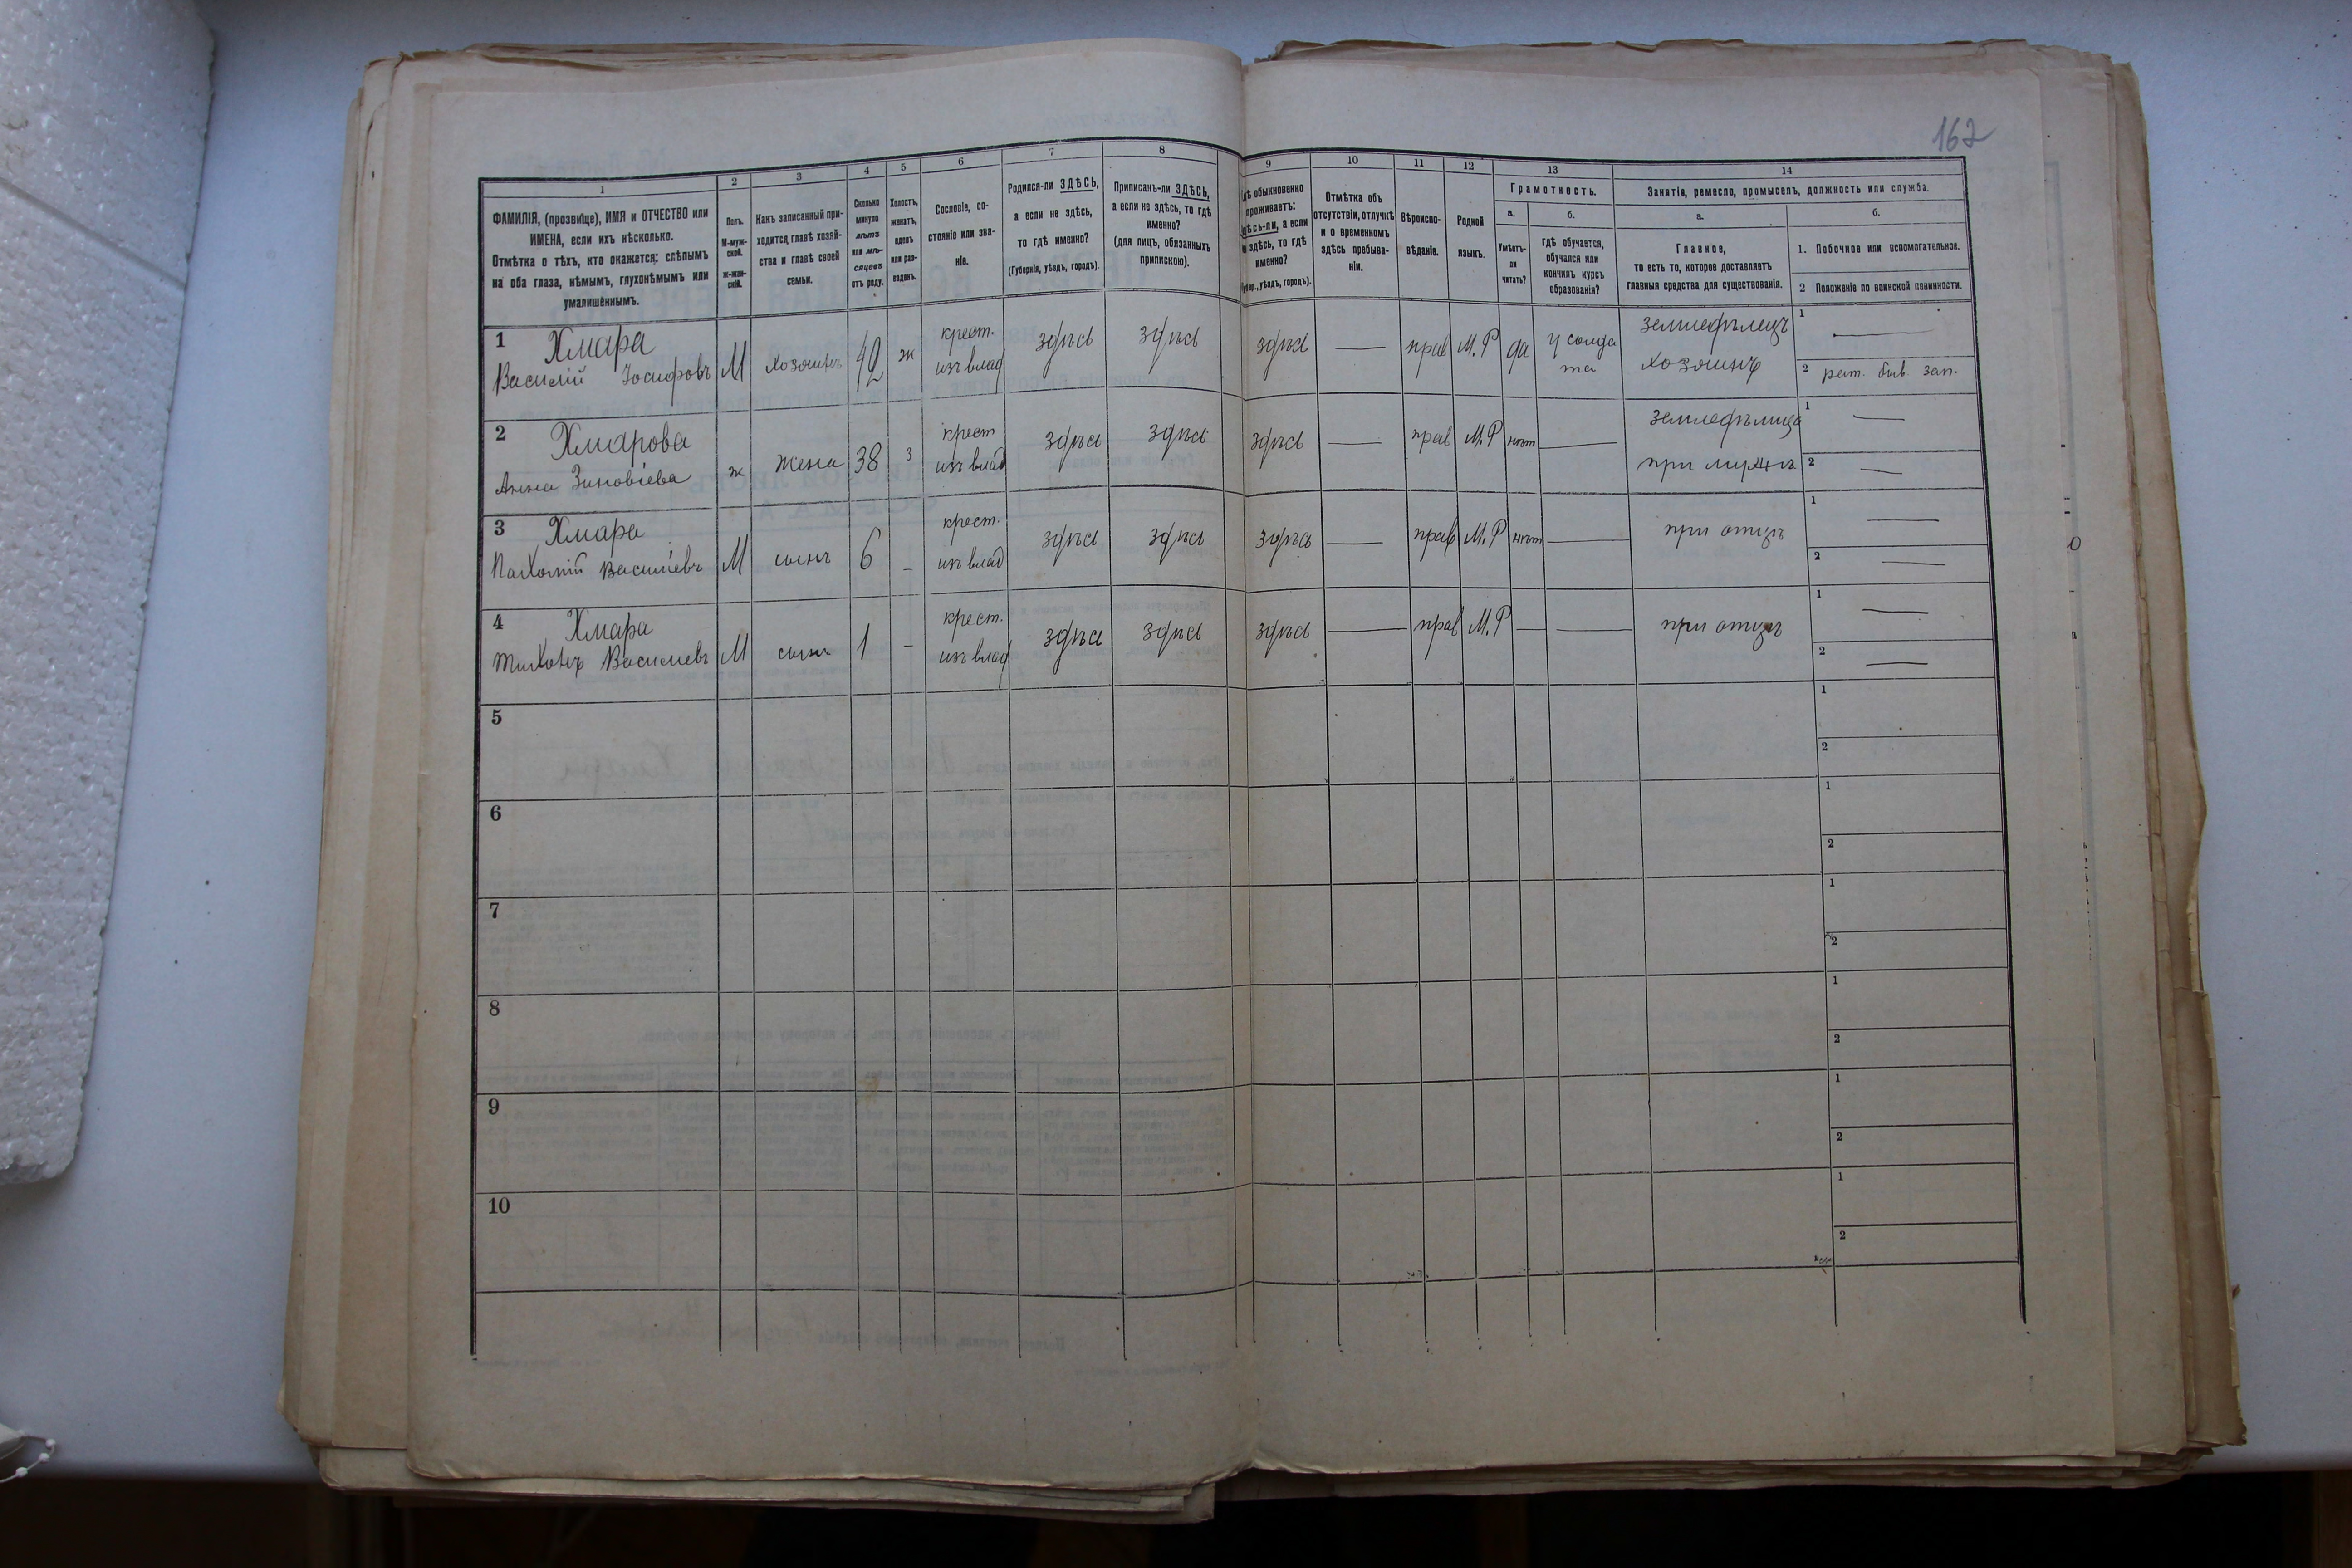 162
1 2 3 4 5 6 7 8 9 10 11 12 13 14
ФАМИЛІЯ, (прозвище), ИМЯ и ОТЧЕСТВО или
ИМЕНА, если ихъ нѣсколько.
Отмѣтка о тѣхъ, кто окажется: слѣпымъ
на оба глаза, нѣмымъ, глухонѣмымъ или
умалишённымъ.
Полъ.
М-муж-
ской.
ж-жен-
скій.
Какъ записанный при-
ходится главѣ хозяй-
ства и главѣ своей
семьи.
Сколько
минуло
лѣтъ
или мѣ-
сяцевъ
отъ роду.
Холостъ,
женатъ,
вдовъ
или раз-
веденъ.
Сословіе, со-
стояніе или зва-
ніе.
Родился-ли ЗДѢСЬ,
а если не здѣсь,
то гдѣ именно?
(Губернія, уѣздъ, городъ).
Приписанъ-ли ЗДѢСЬ,
а если не здѣсь, то гдѣ
именно?
(для лицъ, обязанныхъ
припискою).
обыкновенно
проживаетъ:
а если
здѣсь, то гдѣ
именно?
уѣздъ, городъ).
Отмѣтка объ
отсутствіи, отлучкѣ
и о временномъ
здѣсь пребыва-
ніи.
Вѣроиспо-
вѣданіе.
Родной
языкъ.
Грамотность.
а. б.
Умѣетъ-
ли
читать?
гдѣ обучается,
обучался или
кончилъ курсъ
образованія?
Занятія, ремесло, промыселъ, должность или служба.
а. б.
Главное,
то есть то, которое доставляетъ
главныя средства для существованія.
1. Побочное или вспомогательное.
2 Положеніе по воинской повинности.
1 Хмара
Василій Іосифовъ М хозяинъ 42 ж
крест.
изъ влад
здѣсь здѣсь здѣсь — прав М.Р да
у солда
та
земледѣлецъ
хозяинъ
1 —
2 рат. быв. зап.
2 Хмарова
Анна Зиновіева ж жена 38 з
крест
изъ влад
здѣсь здѣсь здѣсь — прав М.Р нѣтъ —
земледѣлица
при мужѣ
1 —
2 —
3 Хмара
Пахомій Василіевъ М сынъ 6 -
крест.
изъ влад
здѣсь здѣсь здѣсь — прав М.Р нѣтъ —
при отцѣ
1 —
2 —
4 Хмара
Тихонъ Василиевъ М сынъ 1 -
крест.
изъ влад
здѣсь здѣсь здѣсь — прав М.Р — —
при отцѣ
1 —
2 —
5
1
2
6
1
2
7
1
2
8
1
2
9
1
2
10
1
2